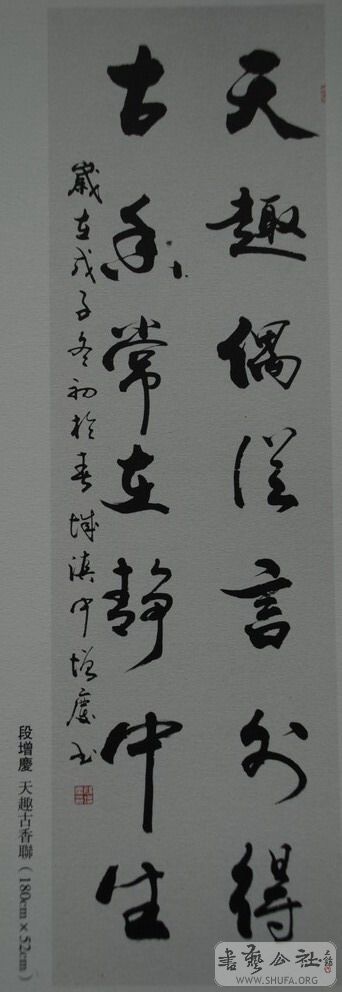 天趣偶從言外得
古香常在静中生
歲在戊子冬初於春城滇中增慶書
段增慶 天趣古香聯（180cm×52cm）
書藝公社
WWW.SHUFA.ORG